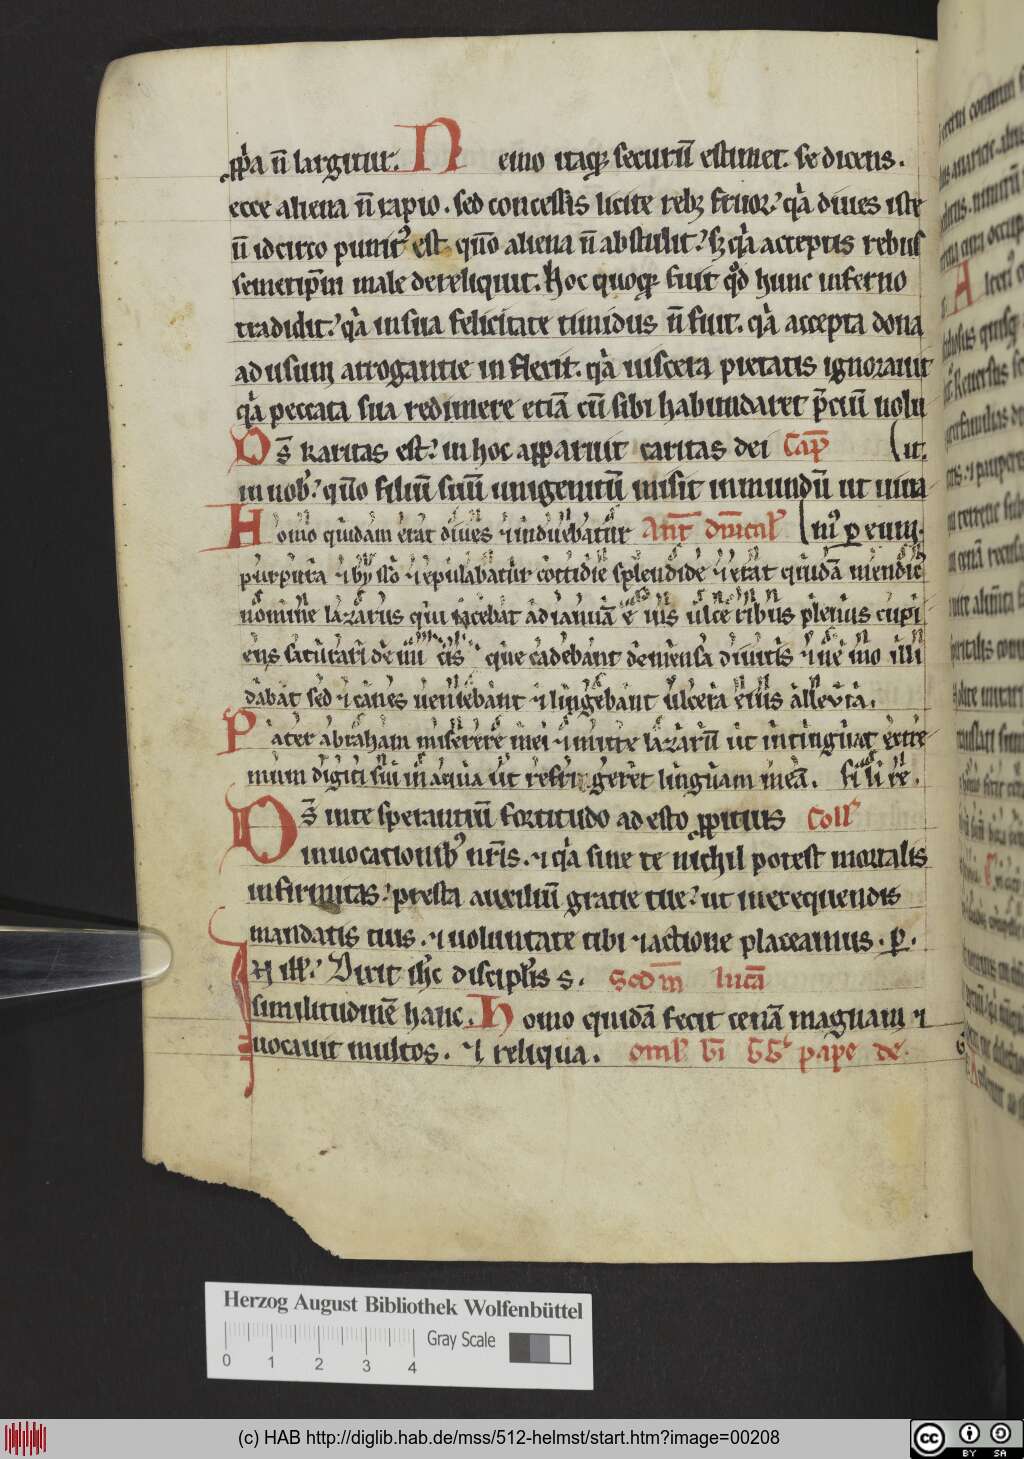 ppͥa n̄ largitur. Nemo itaqꝫ securū estimet se dicens.
ecce aliena n̄ rapio. sed concessis licite rebꝫ fruor. qͥa diues iste
n̄ idcirco puniꝰ est qn̄o aliena n̄ abstulit. sꝫ qͥa acceptis rebus
semetip̄m male dereliquit. Hoc quoqꝫ fuit qͦd hunc inferno
tradidit. qͥa in sua felicitate timidus n̄ fuit. qͥa accepta dona
ad usum arrogantie inflexit. qͥa uiscera pietatis ignorauit
qͥa peccata sua redimere etiā cū sibi habundaret p̄ciū nolu
Ds̄ karitas est. in hoc apparuit caritas dei Cap̄ it.
in nob̾. qm̄o filiū suū unigenitū misit in mundū ut uiua
Homo quidam erat diues ⁊ induebatur Ant̄ Dn̄ical̾ mꝰ ꝑ eum.
purpura ⁊ bysso ⁊ epulabatur cottidie splendide ⁊ erat quidā mendicꝰ
nomine lazarus qui iacebat ad ianuā eius ulceribus plenus cupi
ens saturari de micis que cadebant de mensa diuitis ⁊ nemo illi
dabat sed ⁊ canes ueniebant ⁊ lingebant ulcera eius alleuia.
Pater abraham miserere mei ⁊ mitte lazarū ut intinguat extre
mum digiti sui in aqua ut refrigeret linguam meā. fi li re.
Ds̄ in te sperantiū fortitudo adesto ppitius Coll̾
inuocationibꝰ nr̄is. ⁊ qͥa sine te nichil potest mortalis
infirmitas. presta auxiliū gratie tue. ut in exequendis
mandatis tuis. ⁊ uoluntate tibi ⁊ actione placeamus. ꝑ.
IN ill̾. Dixit ih̄c discipl̾is s. Scd̄m lucā
similitudinē hanc. Homo quidā fecit cenā magnam ⁊
uocauit multos. ⁊ reliqua. omel̾ bī GG̾ pape de.
Herzog August Bibliothek Wolfenbüttel
0 1 2 3 4 Gray Scale
(c) HAB http://diglib.hab.de/mss/512-helmst/start.htm?image=00208
cc BY SA